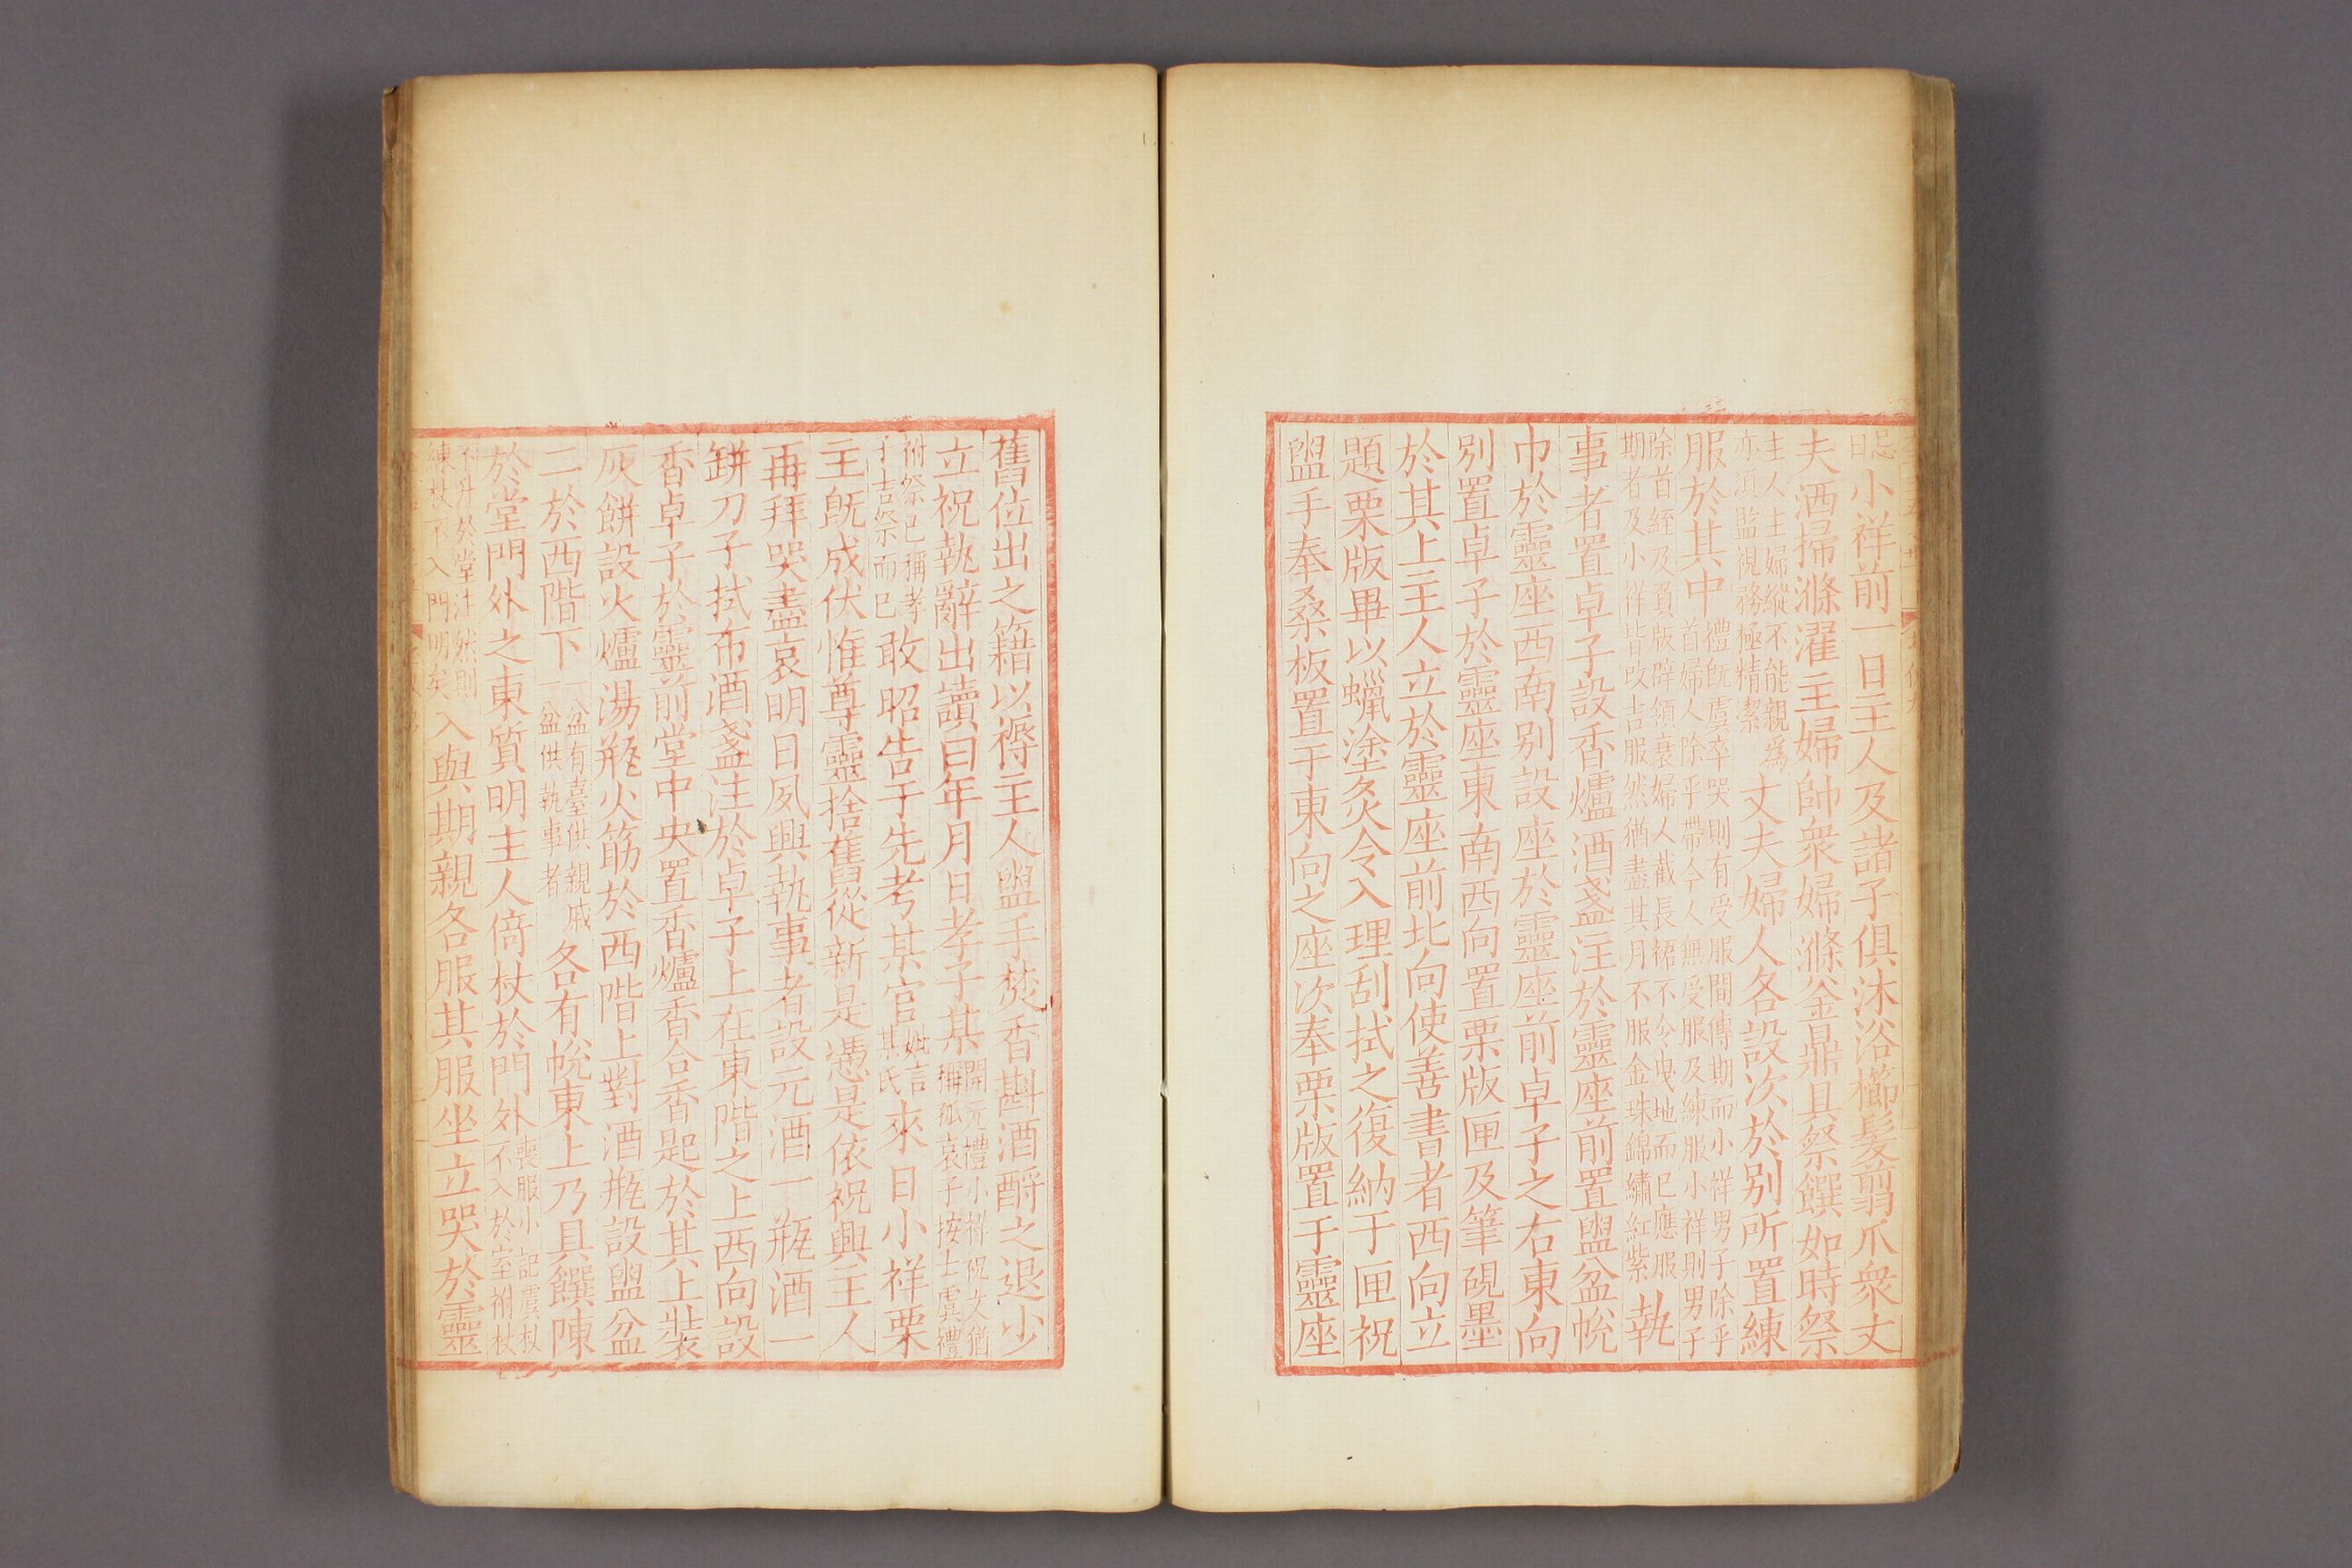 忌日小祥前一日主人及諸子俱沐浴櫛髮翦爪衆丈
夫洒掃滌濯主婦帥衆婦滌釜鼎具祭饌如時祭
主人主婦縱不能親爲
亦湏監視務極精潔
丈夫婦人各設次於別所置練
服於其中
禮旣虞卒哭則有受服間傳期而小祥男子除乎
首婦人除乎帶今人無受服及練服小祥則男子
除首絰及負版辟領衰婦人截長裙不令曳地而已應服
期者及小祥皆改吉服然猶盡其月不服金珠錦繡紅紫
執
事者置卓子設香爐酒盞注於靈座前置盥盆帨
巾於靈座西南别設座於靈座前卓子之右東向
別置卓子於靈座東南西向置栗版匣及筆硯墨
於其上主人立於靈座前北向使善書者西向立
題栗版畢以蠟塗炙令入理刮拭之復納于匣祝
盥手奉桑板置于東向之座次奉栗版置于靈座
舊位出之籍以褥主人盥手焚香斟酒酹之退少
立祝執辭出讀曰年月日孝子某
開元禮小祥祝文猶
稱孤哀子按士虞禮
祔祭已稱孝
子吉祭而已
敢昭告于先考某官
妣言
某氏
來日小祥栗
主旣成伏惟尊靈捨舊從新是憑是依祝興主人
再拜哭盡哀明日夙興執事者設元酒一瓶酒一
缾刀子拭布酒盞注於卓子上在東階之上西向設
香卓子於靈前堂中央置香爐香合香匙於其上裝
灰餅設火爐湯瓶火筯於西階上對酒瓶設盥盆
二於西階下
一盆有臺供親戚
一盆供執事者
各有帨東上乃具饌陳
於堂門外之東質明主人倚杖於門外
喪服小記虞杖
不入於室祔杖
不升於堂注然則
練杖不入門明矣
入與期親各服其服坐立哭於靈